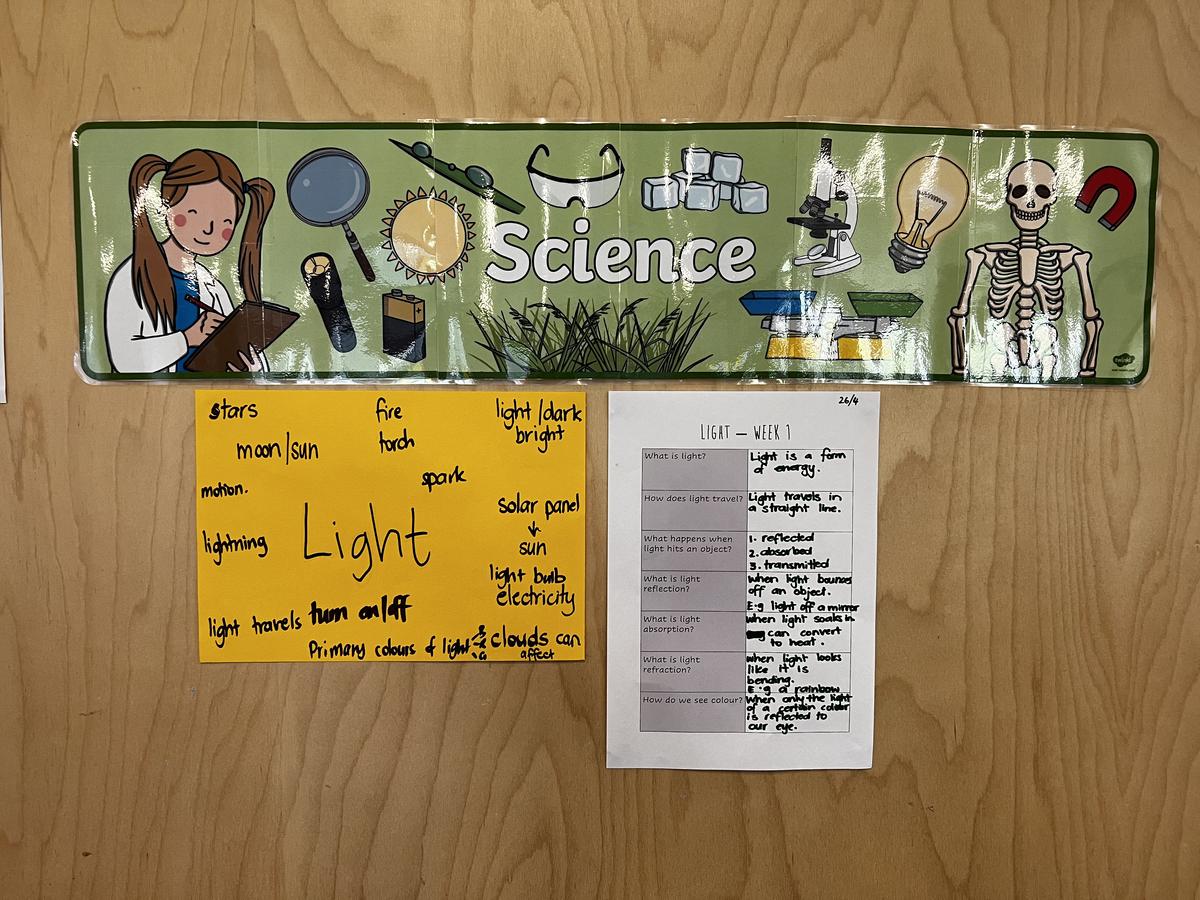 Science
twinkl
stars
fire
light/dark
bright
moon/sun
torch
spark
motion.
solar panel
sun
Light
lightning
light bulb
electricity
light travels
turn on/off
Primary colours of light
clouds can
affect
26/4
LIGHT – WEEK 1
What is light?
Light is a form
of energy.
How does light travel?
Light travels in
a straight line.
What happens when
light hits an object?
1. reflected
2. absorbed
3. transmitted
What is light
reflection?
when light bounces
off an object.
E.g light off a mirror
What is light
absorption?
when light soaks in.
can convert
to heat.
What is light
refraction?
when light looks
like it is
bending.
E.g a rainbow
How do we see colour?
When only the light
of a certain colour
is reflected to
our eye.